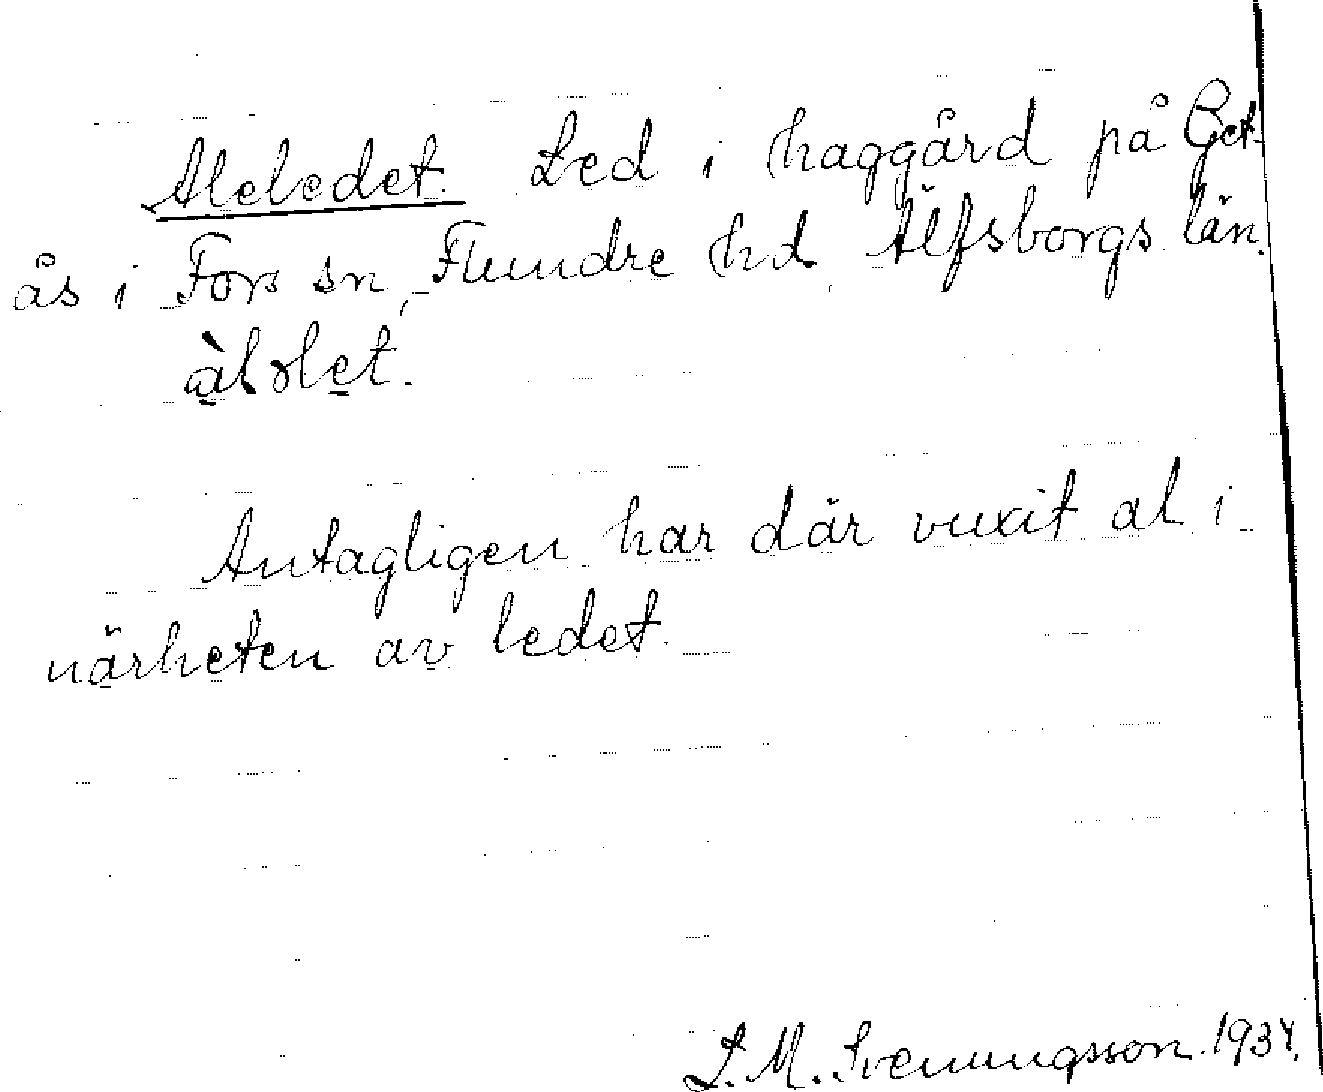 Aleledet. Led i haggård på Get-
ås i Fors sn, Flundre hd Älfsborgs län.
Antagligen har där vuxit al i
närheten av ledet.
S. M. Svenungsson 1934.